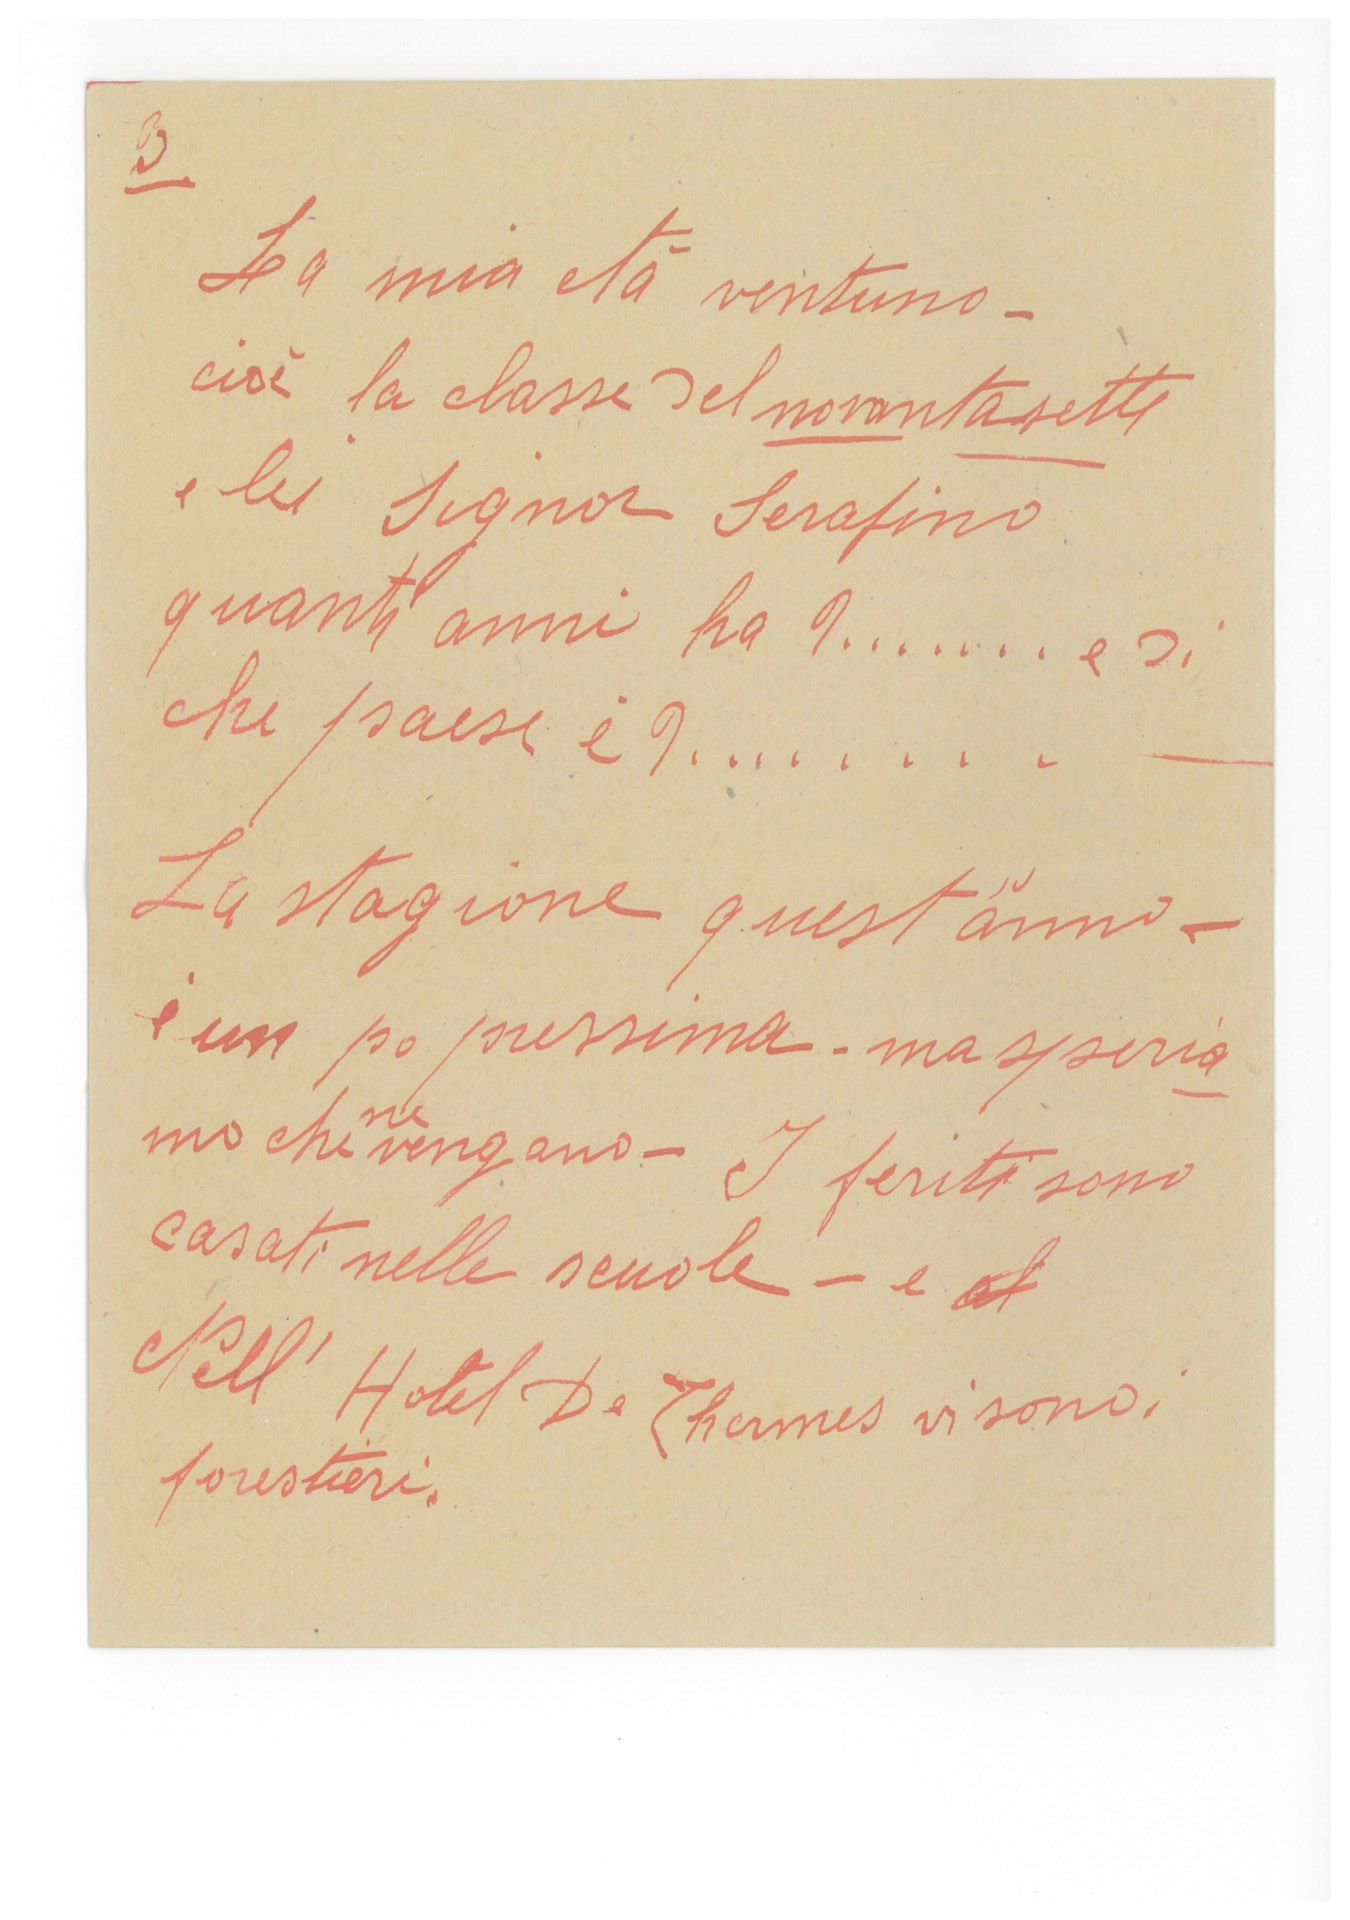 3
La mia età ventuno -
cioè la classe del novantasette
e lei Signor Serafino
quanti anni ha ?........ e di
che paese è ?......... —
La stagione quest'anno -
è un po pressima - ma speria
mo che ne vengano - I feriti sono
casati nelle scuole - e al
Nell' Hotel De Thermes vi sono i
forestieri.